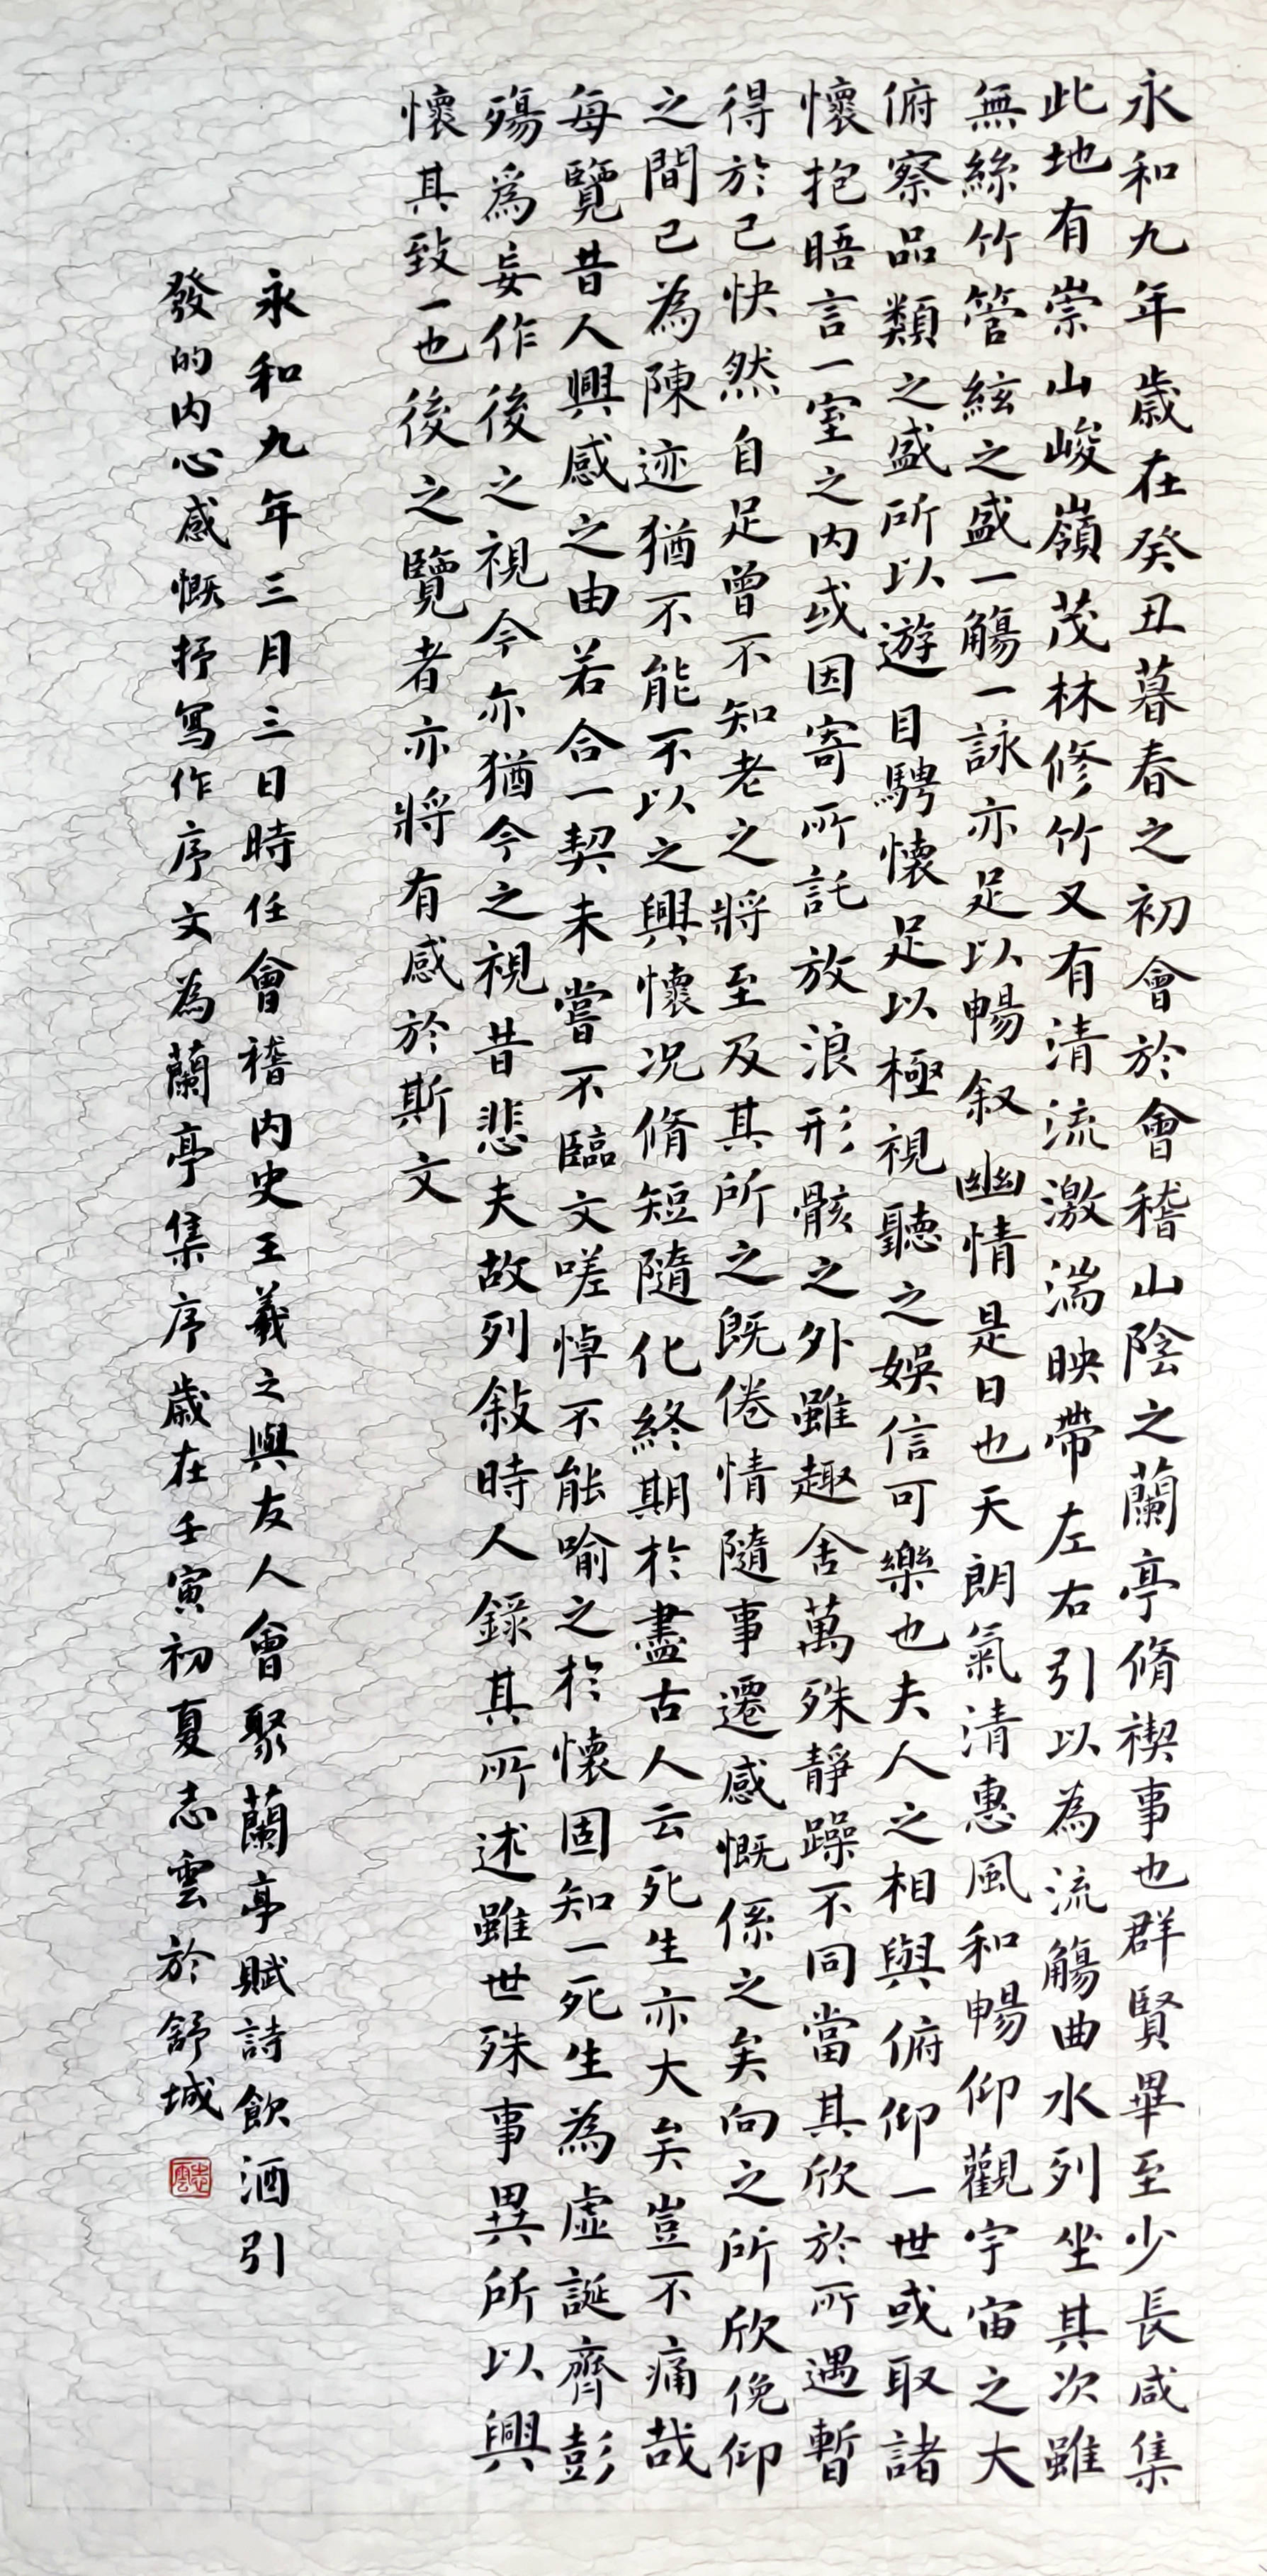 永和九年歲在癸丑暮春之初會於會稽山陰之蘭亭脩禊事也群賢畢至少長咸集
此地有崇山峻嶺茂林修竹又有清流激湍映帶左右引以為流觴曲水列坐其次雖
無絲竹管絃之盛一觴一詠亦足以暢叙幽情是日也天朗氣清惠風和暢仰觀宇宙之大
俯察品類之盛所以遊目騁懷足以極視聽之娛信可樂也夫人之相與俯仰一世或取諸
懷抱晤言一室之内或因寄所託放浪形骸之外雖趣舍萬殊靜躁不同當其欣於所遇暫
得於己快然自足曾不知老之將至及其所之既倦情隨事遷感慨係之矣向之所欣俛仰
之間已為陳迹猶不能不以之興懷况脩短隨化終期於盡古人云死生亦大矣豈不痛哉
每覽昔人興感之由若合一契未嘗不臨文嗟悼不能喻之於懷固知一死生為虛誕齊彭
殤爲妄作後之視今亦猶今之視昔悲夫故列敍時人錄其所述雖世殊事異所以興
懷其致一也後之覽者亦將有感於斯文
永和九年三月三日時任會稽内史王羲之與友人會聚蘭亭賦詩飲酒引
發的内心感慨抒寫作序文為蘭亭集序歲在壬寅初夏志雲於舒城
志雲